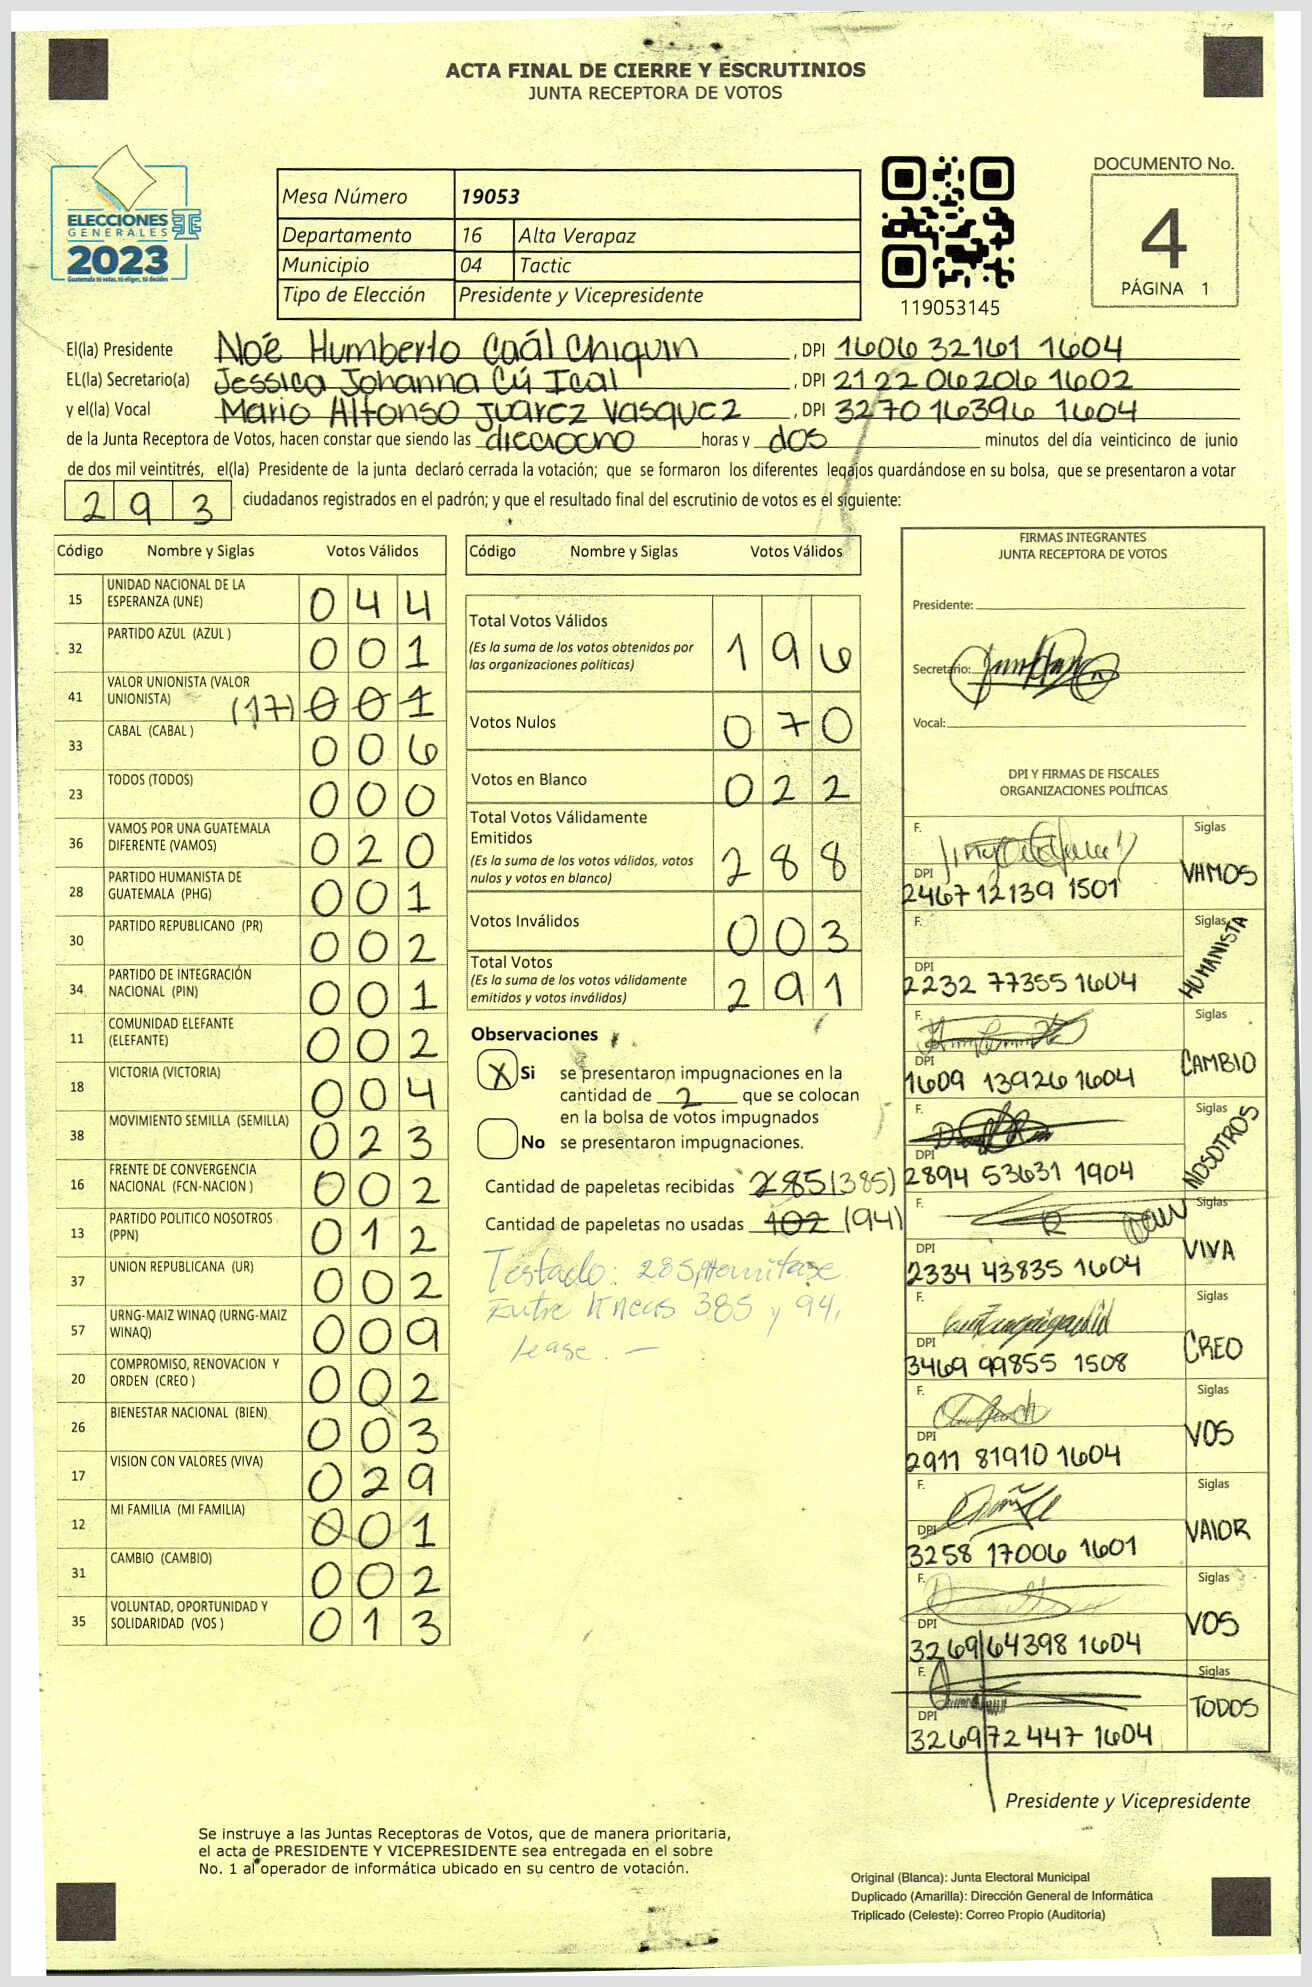 ACTA FINAL DE CIERRE Y ESCRUTINIOS
JUNTA RECEPTORA DE VOTOS
ELECCIONES
GENERALES
2023
Guatemala tú votas, tú eliges, tú decides
Mesa Número 19053
Departamento 16 Alta Verapaz
Municipio 04 Tactic
Tipo de Elección Presidente y Vicepresidente
119053145
DOCUMENTO No.
4
PÁGINA 1
El(la) Presidente Noé Humberto Caál Chiquin , DPI 1606 32161 1604
EL(la) Secretario(a) Jessica Johanna Cú Ical , DPI 2122 06206 1602
y el(la) Vocal Mario Alfonso Juarez Vasquez , DPI 3270 16396 1604
de la Junta Receptora de Votos, hacen constar que siendo las dieciocho horas y dos minutos del día veinticinco de junio
de dos mil veintitrés, el(la) Presidente de la junta declaró cerrada la votación; que se formaron los diferentes legajos guardándose en su bolsa, que se presentaron a votar
293 ciudadanos registrados en el padrón; y que el resultado final del escrutinio de votos es el siguiente:
Código Nombre y Siglas Votos Válidos
15 UNIDAD NACIONAL DE LA ESPERANZA (UNE) 044
32 PARTIDO AZUL (AZUL ) 001
41 VALOR UNIONISTA (VALOR UNIONISTA) (17) 001
33 CABAL (CABAL ) 006
23 TODOS (TODOS) 000
36 VAMOS POR UNA GUATEMALA DIFERENTE (VAMOS) 020
28 PARTIDO HUMANISTA DE GUATEMALA (PHG) 001
30 PARTIDO REPUBLICANO (PR) 002
34 PARTIDO DE INTEGRACIÓN NACIONAL (PIN) 001
11 COMUNIDAD ELEFANTE (ELEFANTE) 002
18 VICTORIA (VICTORIA) 004
38 MOVIMIENTO SEMILLA (SEMILLA) 023
16 FRENTE DE CONVERGENCIA NACIONAL (FCN-NACION ) 002
13 PARTIDO POLITICO NOSOTROS (PPN) 012
37 UNION REPUBLICANA (UR) 002
57 URNG-MAIZ WINAQ (URNG-MAIZ WINAQ) 009
20 COMPROMISO, RENOVACION Y ORDEN (CREO ) 002
26 BIENESTAR NACIONAL (BIEN) 003
17 VISION CON VALORES (VIVA) 029
12 MI FAMILIA (MI FAMILIA) 001
31 CAMBIO (CAMBIO) 002
35 VOLUNTAD, OPORTUNIDAD Y SOLIDARIDAD (VOS ) 013
Código Nombre y Siglas Votos Válidos
Total Votos Válidos 196
(Es la suma de los votos obtenidos por
las organizaciones políticas)
Votos Nulos 070
Votos en Blanco 022
Total Votos Válidamente
Emitidos 288
(Es la suma de los votos válidos, votos
nulos y votos en blanco)
Votos Inválidos 003
Total Votos 291
(Es la suma de los votos válidamente
emitidos y votos inválidos)
Observaciones
X Si se presentaron impugnaciones en la
cantidad de 2 que se colocan
en la bolsa de votos impugnados
No se presentaron impugnaciones.
Cantidad de papeletas recibidas 285 (385)
Cantidad de papeletas no usadas 102 (94)
Testado: 285, Hemitase.
Entre líneas 385 y 94,
Lease. —
FIRMAS INTEGRANTES
JUNTA RECEPTORA DE VOTOS
Presidente:
Secretario:
Vocal:
DPI Y FIRMAS DE FISCALES
ORGANIZACIONES POLÍTICAS
F. Siglas
DPI 2467 12139 1501 VAMOS
F. Siglas
DPI 2232 77355 1604 HUMANISTA
F. Siglas
DPI 1609 13926 1604 CAMBIO
F. Siglas
DPI 2894 53631 1904 NOSOTROS
F. Siglas
DPI 2334 43835 1604 VIVA
F. Siglas
DPI 3469 99855 1508 CREO
F. Siglas
DPI 2911 81910 1604 VOS
F. Siglas
DPI 3258 17006 1601 VALOR
F. Siglas
DPI 3269 64398 1604 VOS
F. Siglas
DPI 3269 72447 1604 TODOS
Presidente y Vicepresidente
Se instruye a las Juntas Receptoras de Votos, que de manera prioritaria,
el acta de PRESIDENTE Y VICEPRESIDENTE sea entregada en el sobre
No. 1 al operador de informática ubicado en su centro de votación.
Original (Blanca): Junta Electoral Municipal
Duplicado (Amarilla): Dirección General de Informática
Triplicado (Celeste): Correo Propio (Auditoría)